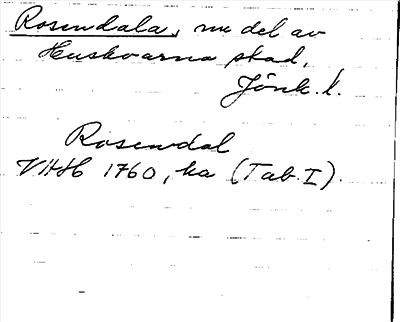 Rosendala, nu del av
Huskvarna stad,
Jönk. l.
Rosendal
VHH 1760, ka (Tab. I).